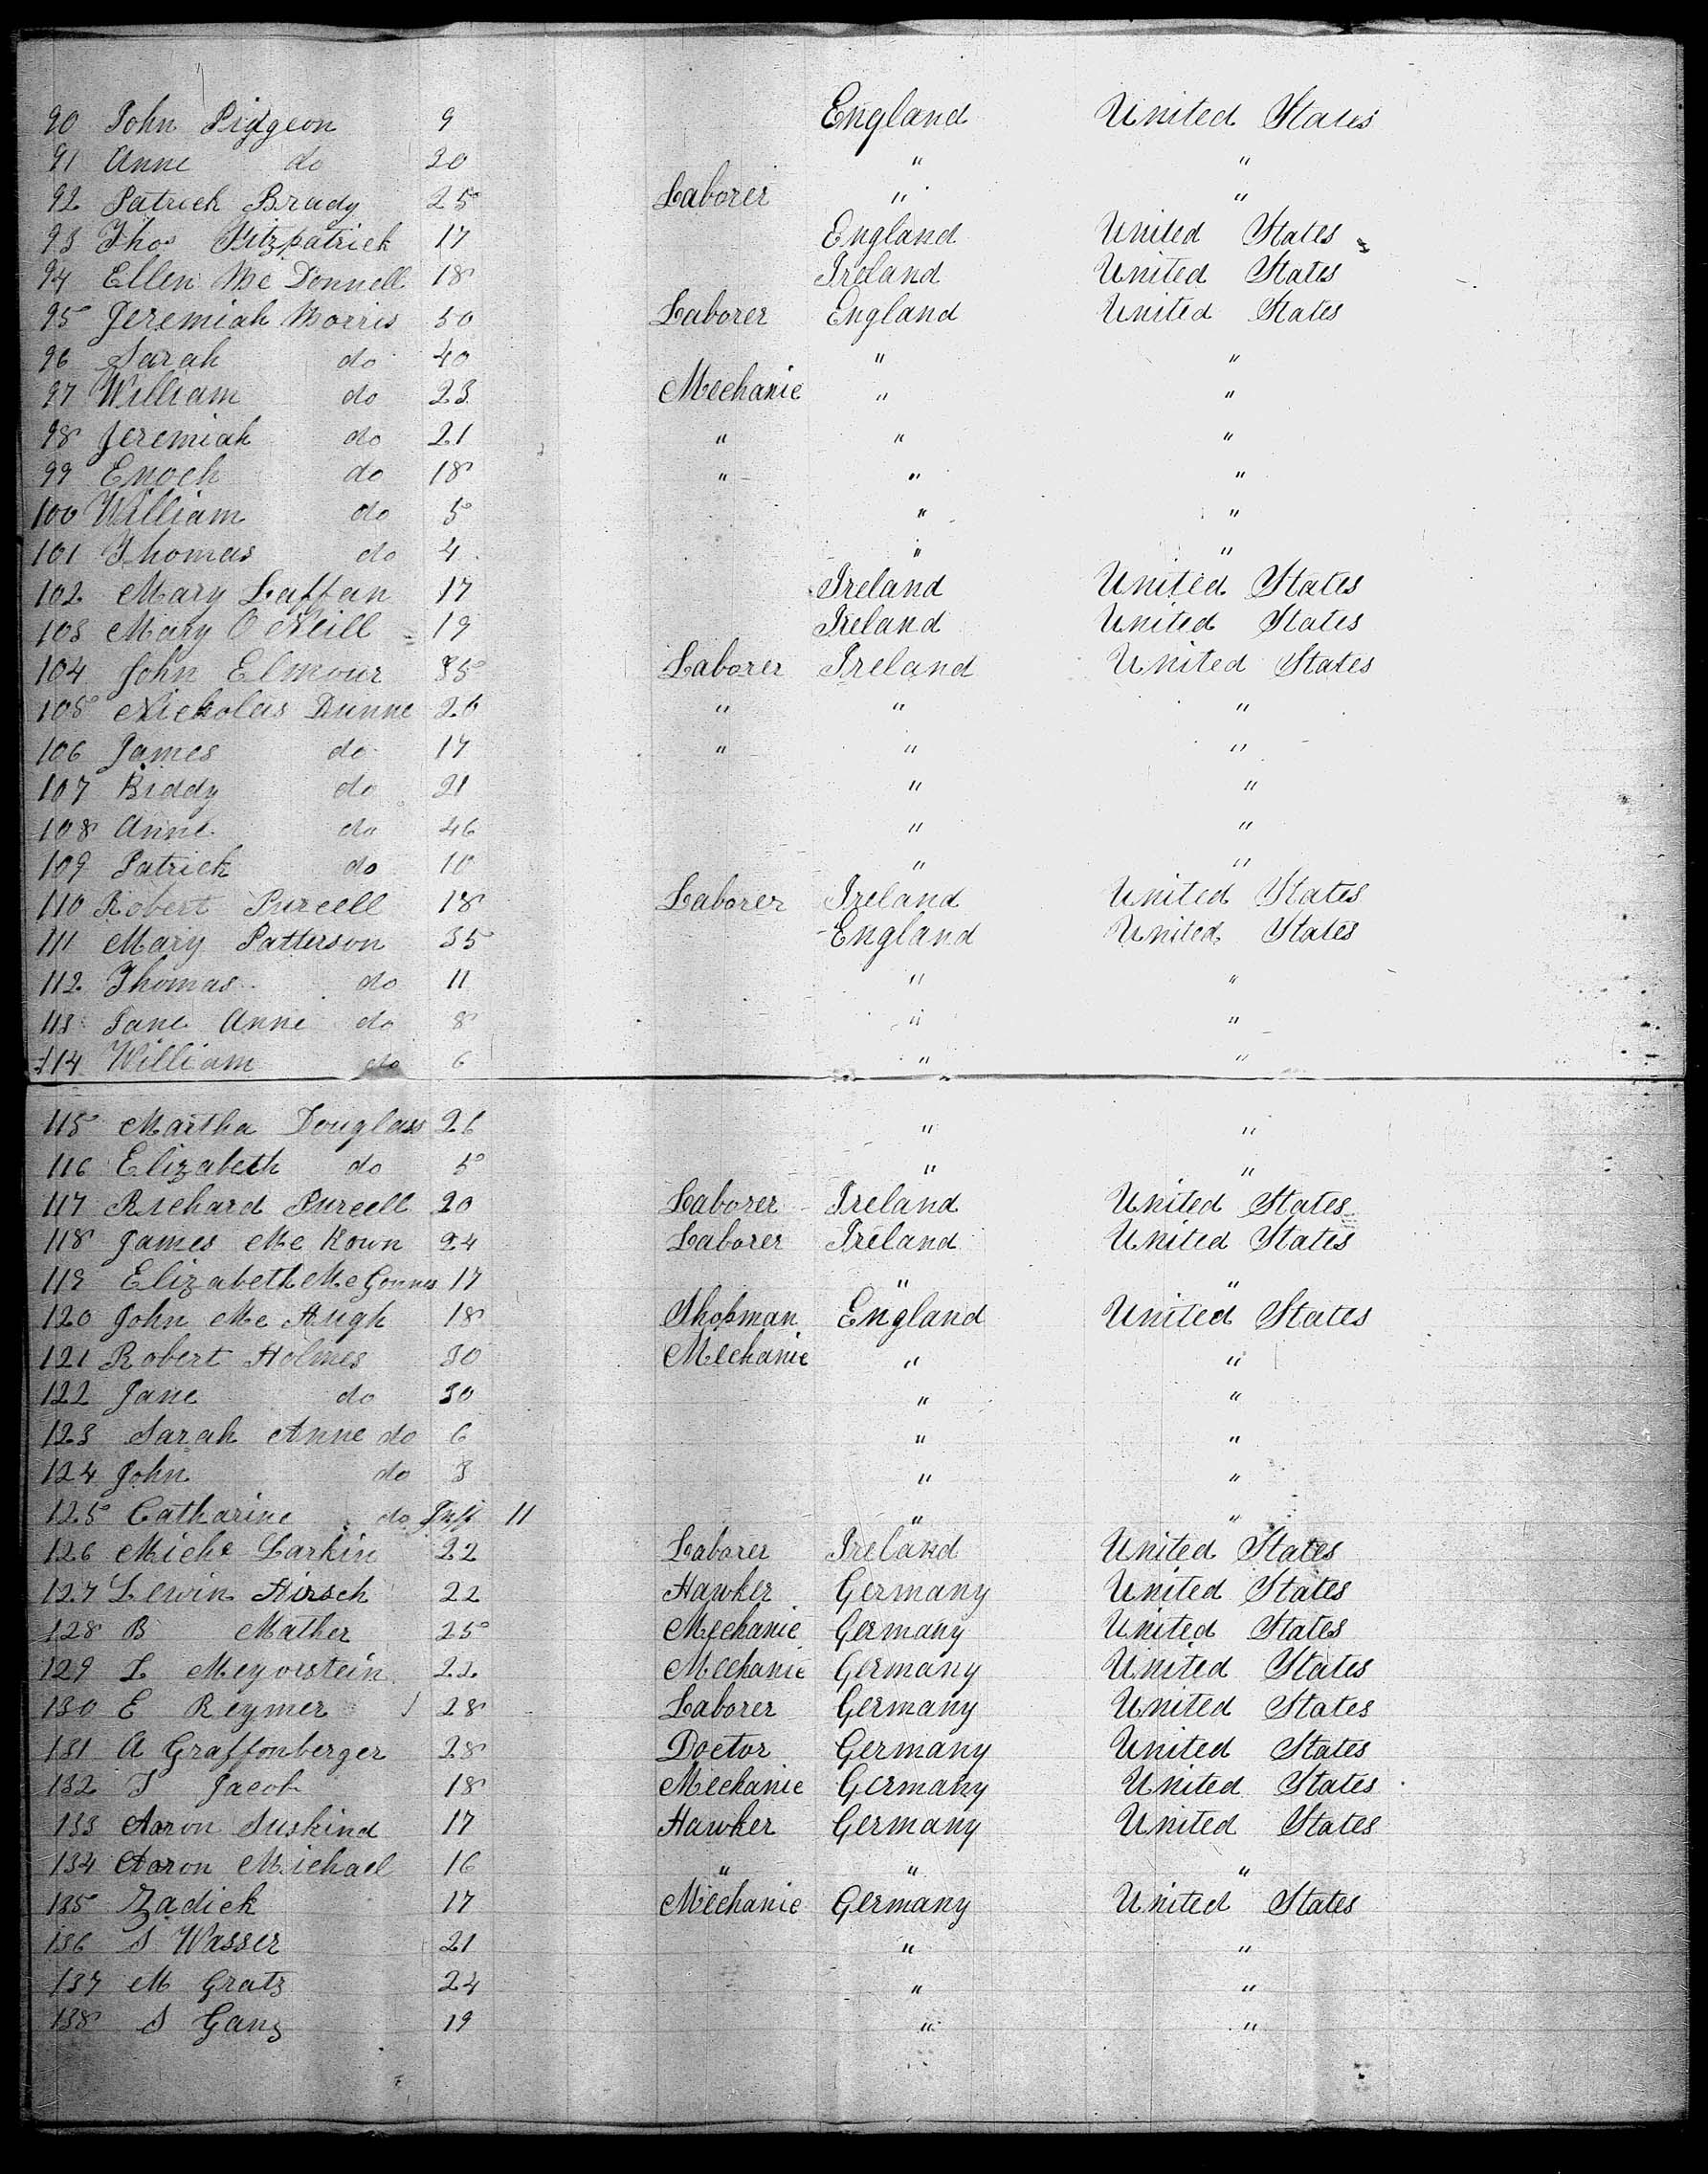 90 John Pidgeon 9 England United States
91 Anne do 20 " "
92 Patrick Brady 25 Laborer " "
93 Thos Fitzpatrick 17 England United States
94 Ellen Mc Donnell 18 Ireland United States
95 Jeremiah Morris 50 Laborer England United States
96 Sarah do 40 " "
97 William do 23 Mechanic " "
98 Jeremiah do 21 " " "
99 Enoch do 18 " " "
100 William do 5 " "
101 Thomas do 4 " "
102 Mary Laffan 17 Ireland United States
103 Mary O Neill 19 Ireland United States
104 John Elmour 35 Laborer Ireland United States
105 Nickolas Dunne 26 " " "
106 James do 17 " " "
107 Biddy do 21 " "
108 Anne do 46 " "
109 Patrick do 10 " "
110 Robert Purcell 18 Laborer Ireland United States
111 Mary Patterson 35 England United States
112 Thomas do 11 " "
113 Jane Anne do 8 " "
114 William do 6 " "
115 Martha Douglass 26 " "
116 Elizabeth do 5 " "
117 Richard Purcell 20 Laborer Ireland United States
118 James Mc Kown 24 Laborer Ireland United States
119 Elizabeth 17 " "
120 John Mc Hugh 18 Shopman England United States
121 Robert Holmes 30 Mechanic " "
122 Jane do 30 " "
123 Sarah Anne do 6 " "
124 John do 3 " "
125 Catharine do Inft 11 " "
126 Miche Larkin 22 Laborer Ireland United States
127 Lewin Hirsch 22 Hawker Germany United States
128 B Mather 25 Mechanic Germany United States
129 L Meyorstein 22 Mechanic Germany United States
130 E Reymer 28 Laborer Germany United States
131 A Graffonberger 28 Doctor Germany United States
132 Jacob 18 Mechanic Germany United States
133 Aaron Suskind 17 Hawker Germany United States
134 Aaron Michael 16 " " "
135 Zadick 17 Mechanic Germany United States
136 S Wasser 21 " "
137 M Gratz 24 " "
138 S Ganz 19 " "